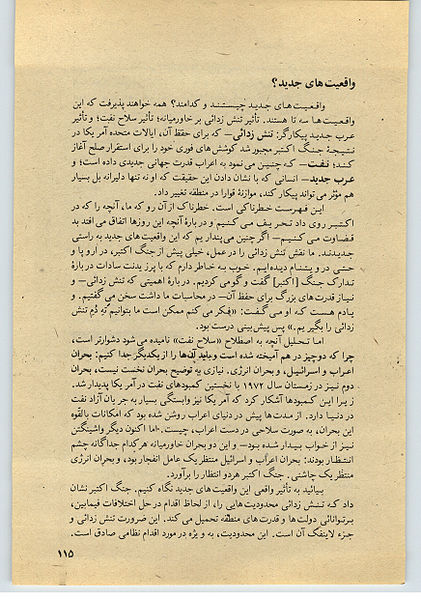 واقعیت‌های جدید؟
واقعـیـت‌هـای جـدیـد چیـسـتـنـد و کدامند؟ همه خواهند پذیرفت که این
واقعیـت‌هـا سه تا هستند. تأثیر تنش زدائی بر خاورمیانه؛ تأثیر سلاح نفت؛ و تأثیر
عرب جدیـد پیکارگر: تنش زدائی — که برای حفظ آن، ایالات متحده آمریکا در
نتیـجـۀ جنگ اکتبر مجبور شد کوشش‌های فوری خود را برای استقرار صلح آغاز
کند؛ نـفـت — کـه چنـین می نمود به اعراب قدرت جهانی جدیدی داده است؛ و
عرب جدید — انسانی که با نشان دادن این حقیقت که او نه تنها دلیرانه بل بسیار
هم مؤثر می‌تواند پیکار کند، موازنۀ قوا را در منطقه تغییر داد.
ایـن فـهـرسـت خطرنـاکی است. خطرناک از آن رو که ما، آنچه را که در
اکـتـبـر روی داد تحـریـف مـی کـنـیـم و دربارۀ آنچه این روزها اتفاق می افتد بد
قـضـاوت مـی کـنـیـم — اگر چنین می پنداریم که این واقعیت‌های جدید به راستی
جـدیـدنـد. ما نقش تنش زدائی را در عمل، خیلی پیش از جنگ اکتبر، در اروپا و
حتـی در ویـتـنـام دیده ایم. خوب بـه خـاطر دارم که با پرزیدنت سادات دربارۀ
تـدارک جنـگ [اکتبر] گفت و گو می کردیم. دربارۀ اهمیتی که تنش زدائی — و
نیـاز قدرت‌های بزرگ برای حفظ آن — در محاسبات ما داشت سخن می‌گفتیم. و
یـادم هـسـت کـه او مـی گـفـت: «فکر می کنم ممکن است ما بتوانیم تهِ دُم تنش
زدائی را بگیریم.» پس پیش‌بینی درست بود.
امـا تـحـلیل آنچه به اصطلاح «سلاح نفت» نامیده می شود دشوارتر است،
چرا که دو چیز در هم آمیخته شده است و باید آن‌ها را از یکدیگر جدا کنیم: بحران
اعراب و اسـرائـیـل، و بحران انرژی. نیازی به توضیح بحران نخست نیست، بحران
دوم نـیـز در زمستان سال ۱۹۷۲ با نخستین کمبودهای نفت در آمریکا پدیدار شد.
زیـرا ایـن کمـبـودها آشکار کرد که آمریکا نیز وابستگی بسیار به جریان آزاد نفت
در دنیـا دارد. از مـدت‌هـا پیش در دنیای اعراب روشن شده بود که امکانات بالقوه
این بحران، به صورت سلاحی در دست اعراب، چیست. اما اکنون دیگر واشینگتن
نیـز از خـواب بیـدار شـده بـود — و این دو بحران خاورمیانه هر کدام جداگانه چشم
انتـظـار بودند: بحران اعراب و اسرائیل منتظر یک عامل انفجار بود، و بحران انرژی
منتظر یک چاشنی. جنگ اکتبر هر دو انتظار را برآورد.
بـیـائیـد به تأثیر واقعی این واقعیت‌های جدید نگاه کنیم. جنگ اکتبر نشان
داد کـه تـنـش زدائی محدودیت‌هایی را، از لحاظ اقدام در حل اختلافات فیمابین،
بـر تـوانـائی دولت‌ها و قدرت‌های منطقه تحمیل می کند. این ضرورت تنش زدائی و
جـزء لاینفک آن است. این محدودیت، به ویژه در مورد اقدام نظامی صادق است.
۱۱۵